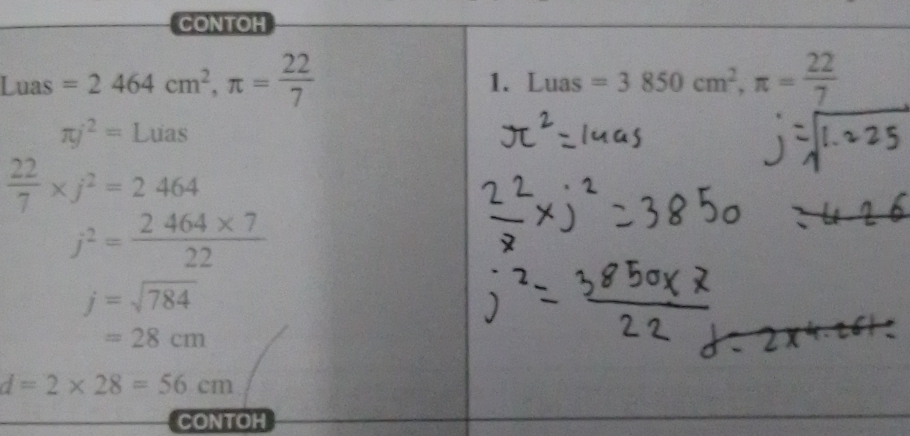 CONTOH
Luas = 2 464 cm², π = 22/7
πj² = Luas
22/7 × j² = 2 464
j² = (2 464 × 7)/22
j = √784
= 28 cm
d = 2 × 28 = 56 cm
CONTOH
1. Luas = 3 850 cm², π = 22/7
π² = luas
22/7 × j² = 3850
j² = (3850 × 7)/22
j = √1.225